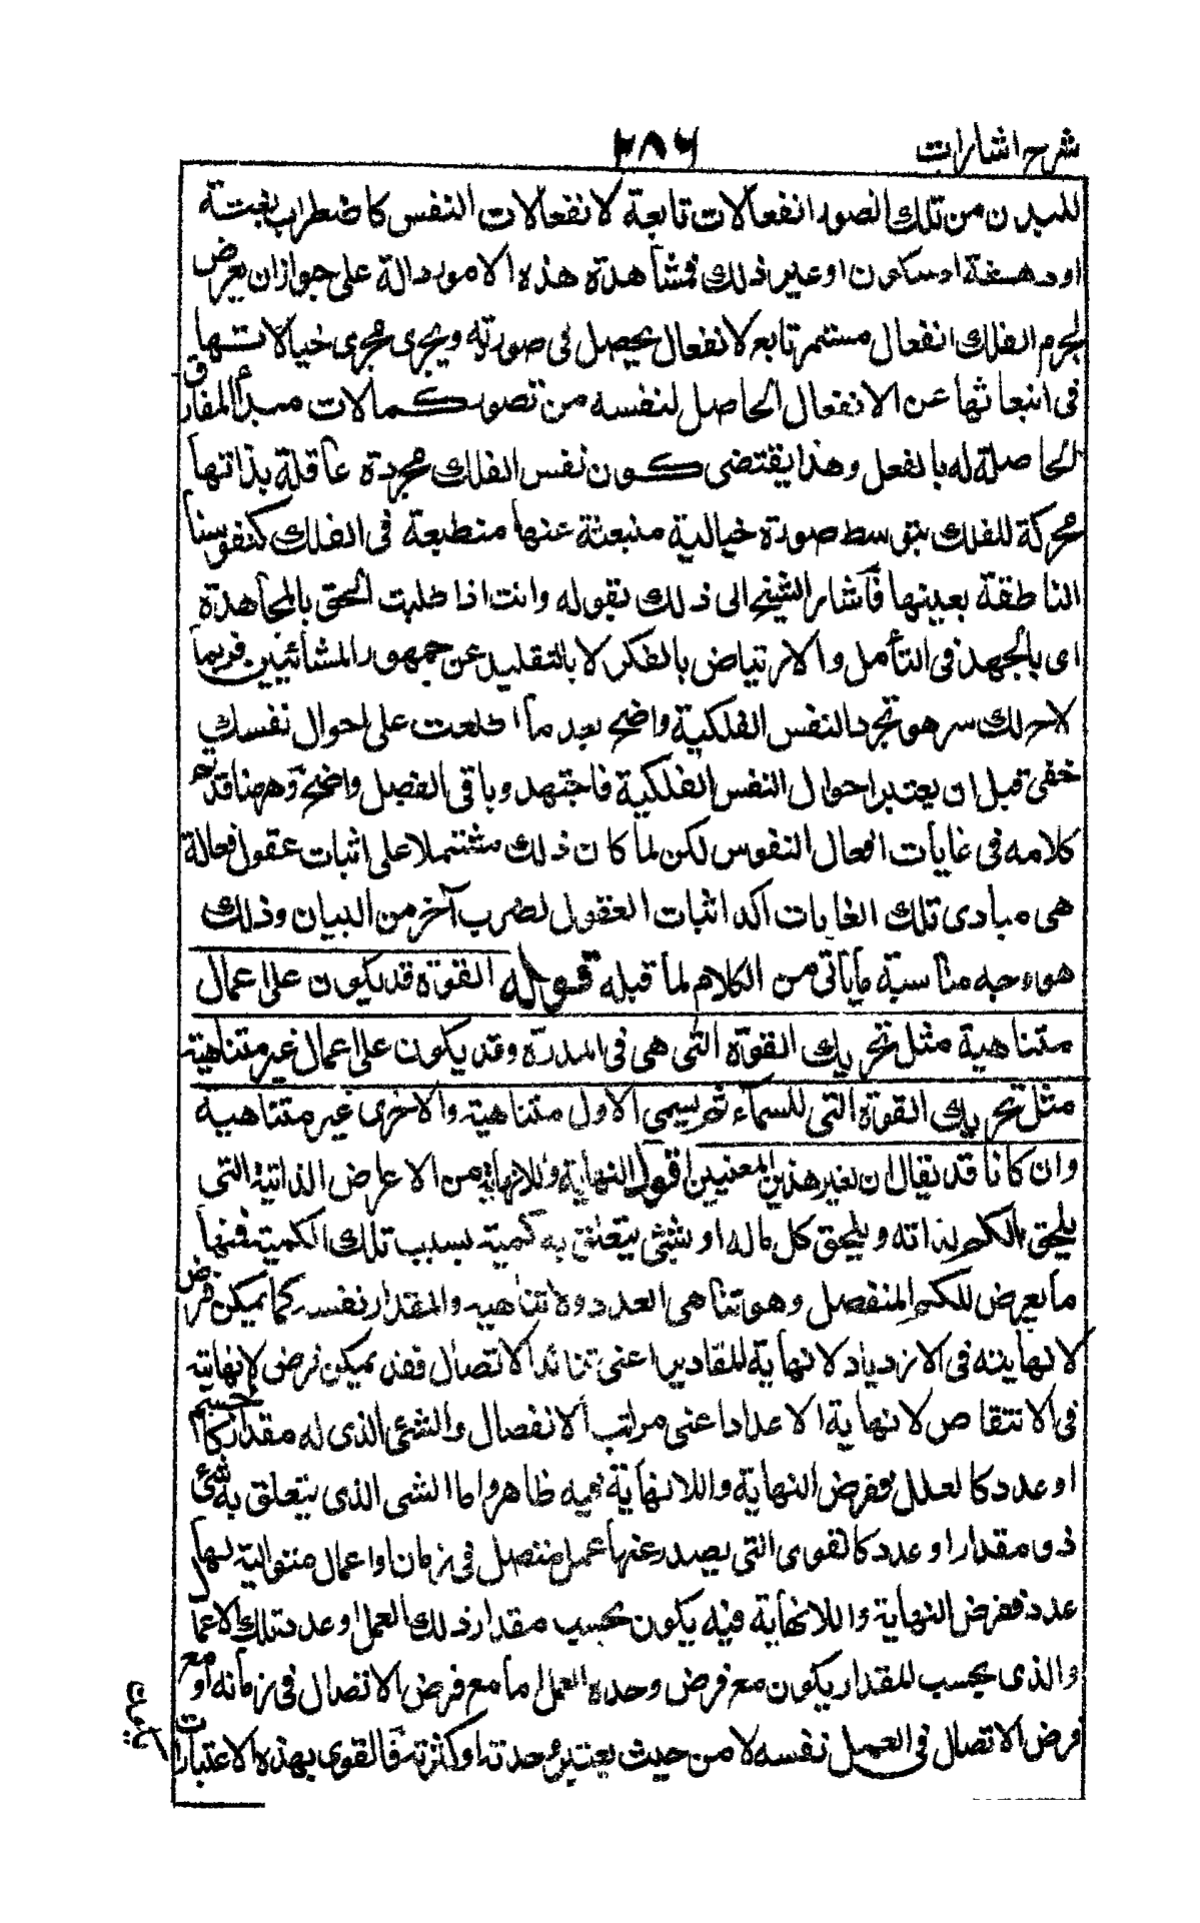 شرح اشارات ٢٨٦
للبدن من تلك الصور انفعالات تابعة لانفعالات النفس كاضطراب بغتة
او دهشة او سكون او غير ذلك فمشاهدة هذه الامور دالة على جواز ان يعرض
لجرم الفلك انفعال مستمر تابع لانفعال يحصل فى صورته ويجرى مجرى خيالاتها
فى انبعاثها عن الانفعال الحاصل لنفسه من تصور كمالات مبدأ المفارق
الحاصلة له بالفعل وهذا يقتضى كون نفس الفلك مجردة عاقلة بذاتها
محركة للفلك بتوسط صورة خيالية منبعثة عنها منطبعة فى الفلك كنفوسنا
الناطقة بعينها فاشار الشيخ الى ذلك بقوله وانت اذا طلبت الحق بالمجاهدة
اى بالجهد فى التأمل والارتياض بالفكر لا بالتقليد عن جمهور المشائيين فربما
لاح لك سر هو تجرد النفس الفلكية واضح بعد ما اطلعت على احوال نفسك
خفى قبل ان يعتبر احوال النفس الفلكية فاجتهد وباقى الفصل واضح وههنا قد تم
كلامه فى غايات افعال النفوس لكن لما كان ذلك مشتملا على اثبات عقول فعالة
هى مبادى تلك الغايات اكد اثبات العقول لضرب آخر من البيان وذلك
هو وجه مناسبة ما يأتى من الكلام لما قبله قوله القوة قد يكون على اعمال
متناهية مثل تحريك القوة التى هى فى المدرة وقد يكون على اعمال غير متناهية
مثل تحريك القوة التى للسماء ثم يسمى الاول متناهية والاخرى غير متناهية
وان كانا قد يقال ان لغير هذين المعنيين اقول النهاية واللانهاية من الاعراض الذاتية التى
يلحق الكم لذاته ويلحق كل ما له او بشئ يتعلق به كمية بسبب تلك الكمية فمنها
ما يعرض للكم المنفصل وهو تناهى العدد ولا تناهيه والمقدار نفسه كما يمكن فرض
لانهايته فى الازدياد لانهاية للمقادير اعنى تزائد الاتصال فقد يمكن فرض لانهايته
فى الانتقاص لانهاية الاعداد اعنى مراتب الانفصال والشئ الذى له مقدار كالجسم
او عدد كالعلل ففرض النهاية واللانهاية فيه ظاهر واما الشى الذى يتعلق به شئ
ذو مقدار او عدد كالقوى التى يصدر عنها عمل متصل فى زمان او اعمال متوالية لها
عدد ففرض النهاية واللانهاية فيه يكون بحسب مقدار ذلك العمل او عدد تلك الاعمال
والذى بحسب المقدار يكون مع فرض وحدة العمل اما مع فرض الاتصال فى زمانه او مع
فرض الاتصال فى العمل نفسه لا من حيث يعتبر وحدته او كثرته فالقوى بهذه الاعتبارات